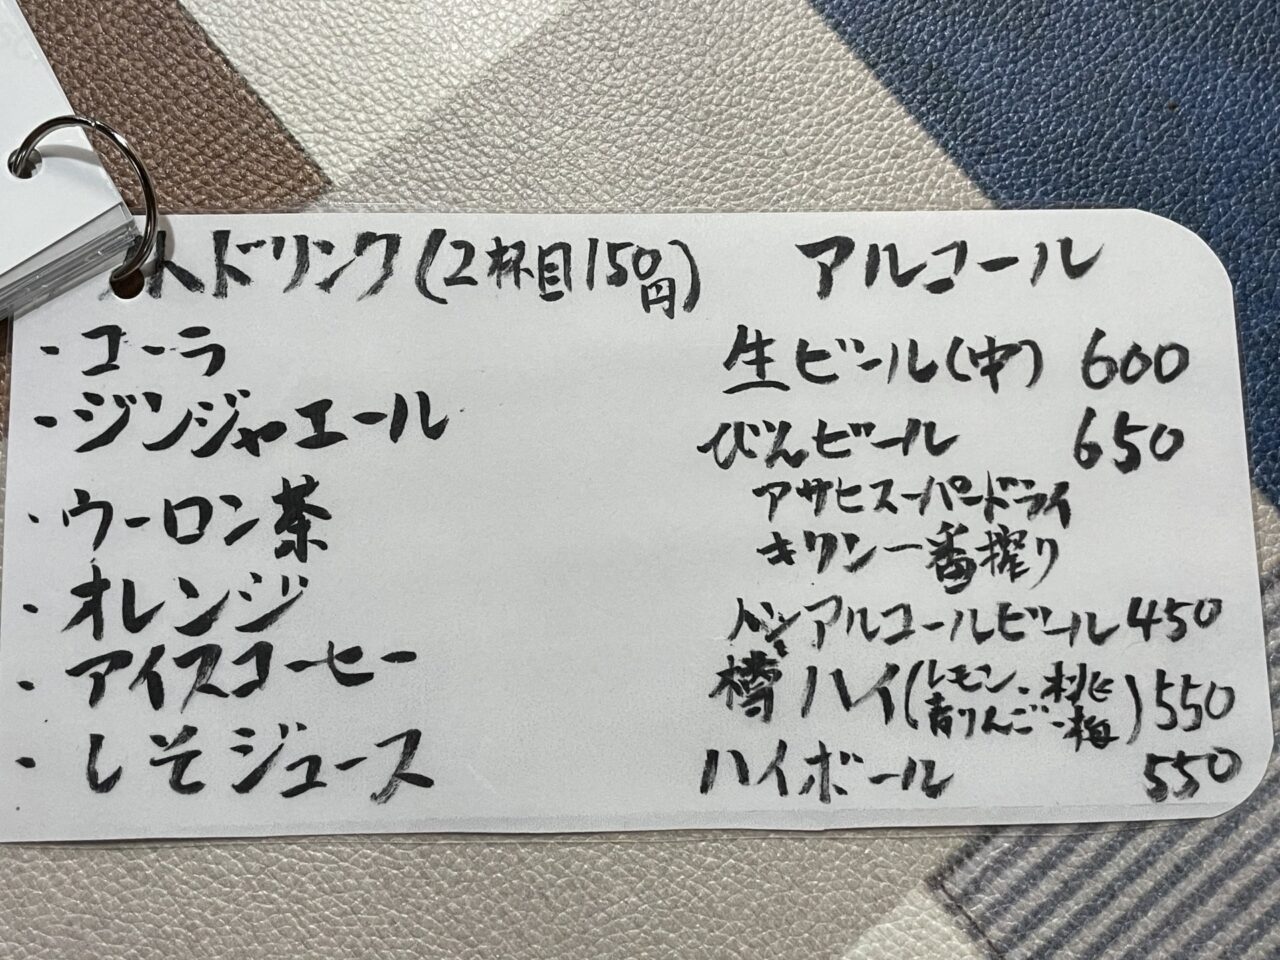 ドリンク(2杯目150円)
・コーラ
・ジンジャエール
・ウーロン茶
・オレンジ
・アイスコーヒー
・しそジュース
アルコール
生ビール(中) 600
びんビール 650
アサヒスーパードライ
キリン一番搾り
ノンアルコールビール 450
樽ハイ(レモン・桃
青りんご・梅) 550
ハイボール 550